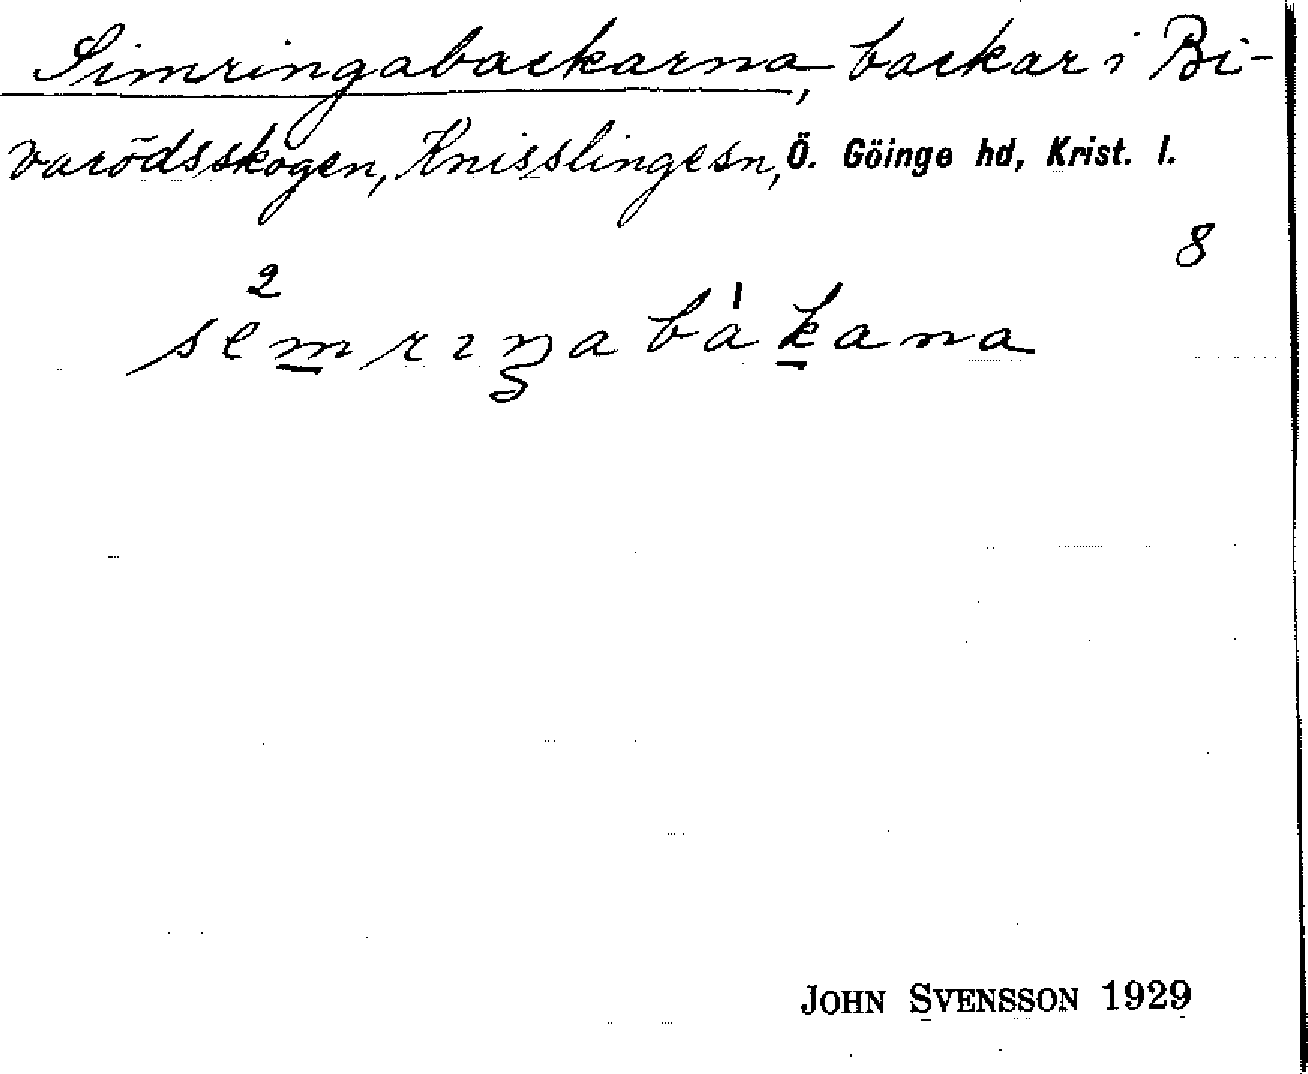 Simringabackarna, backar i Bi-
varödsskogen, Knisslinge sn, Ö. Göinge hd, Krist. l.
8
2
semrıŋabàkana
JOHN SVENSSON 1929